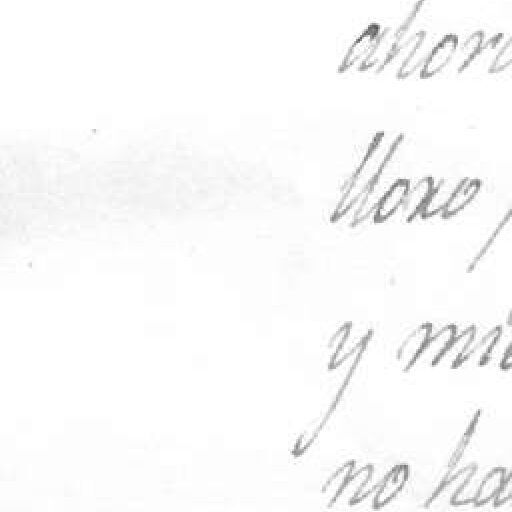 ahora
lloxo
y mie
no ha